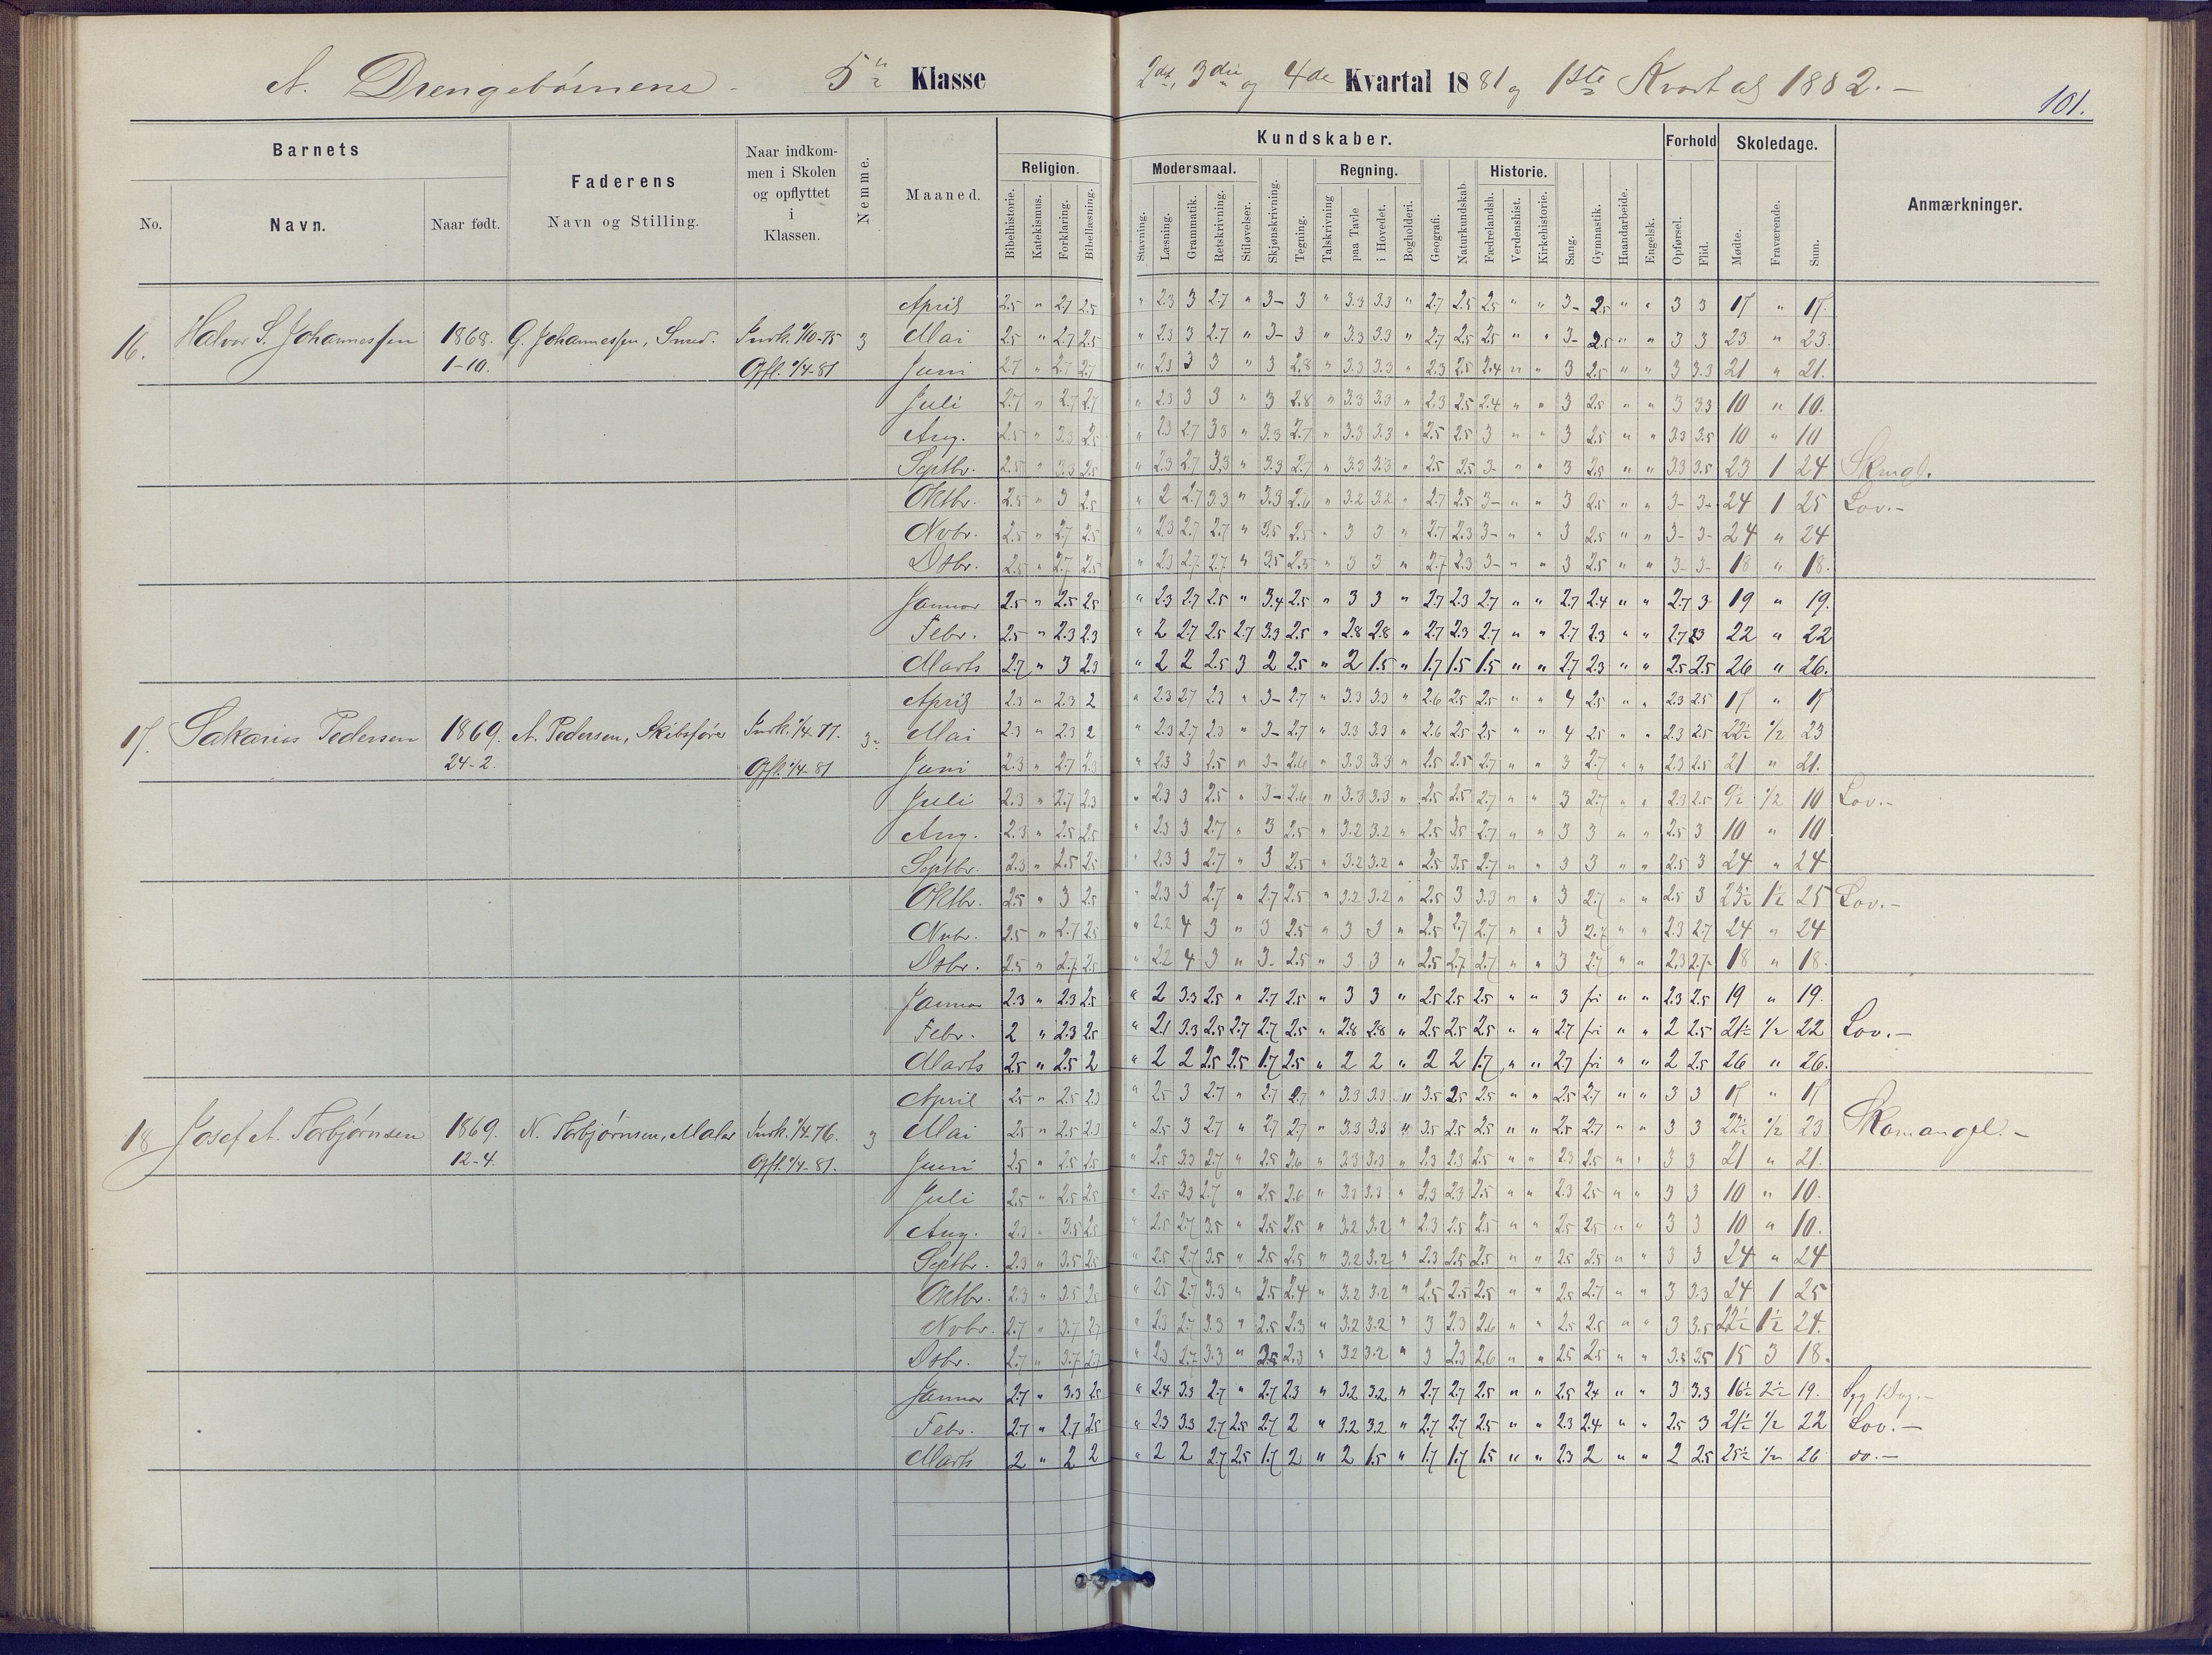 A. Drengebørnens 5te Klasse 2det, 3die og 4de Kvartal 1881 og 1ste Kvartal 1882.
101.
Barnets
Faderens
Navn og Stilling.
Naar indkommen i Skolen og opflyttet i Klassen.
Nemme.
Maaned.
Kundskaber.
Forhold
Skoledage.
Anmærkninger.
No.
Navn.
Naar født.
Religion.
Modersmaal.
Regning.
Historie.
Bibelhistorie.
Katekismus.
Forklaring.
Bibellæsning.
Stavning.
Læsning.
Grammatik.
Retskrivning.
Stiløvelser.
Skjønskrivning.
Tegning.
Talskrivning
paa Tavle
i Hovedet.
Bogholderi.
Geografi.
Naturkundskab.
Fædrelandsh.
Verdenshist.
Kirkehistorie.
Sang.
Gymnastik.
Haandarbeide.
Engelsk.
Opførsel.
Flid.
Mødte.
Fraværende.
Sum.
April 2.5 " 2.7 2.5 " 2.3 3 2.7 " 3- 3 " 3.3 3.3 " 2.7 2.5 2.5 " " 3- 2.5 " " 3 3 17 " 17.
16. Halvor S. Johannessen 1868. G. Johannessen, Smed. 3 Mai 2.5 " 2.7 2.5 " 2.3 3 2.7 " 3- 3 " 3.3 3.3 " 2.7 2.5 2.5 " " 3- 2.5 " " 3 3 23 " 23.
1-10. Opfl. 1/4-81 Juni 2.7 " 2.7 2.7 " 2.3 3 3 " 3 2.8 " 3.3 3.3 " 2.3 2.5 2.4 " " 3 2.5 " " 3 3.3 21 " 21.
Juli 2.7 " 2.7 2.7 " 2.3 3 3 " 3 2.8 " 3.3 3.3 " 2.3 2.5 2.4 " " 3 2.5 " " 3 3.3 10 " 10.
Aug. 2.5 " 3.3 2.5 " 2.3 2.7 3.3 " 3.3 2.7 " 3.3 3.3 " 2.5 2.5 3 " " 3 2.5 " " 3.3 3.5 10 " 10
Septbr. 2.5 " 3.3 2.5 " 2.3 2.7 3.3 " 3.3 2.7 " 3.3 3.3 " 2.5 2.5 3- " " 3 2.5 " " 3.3 3.5 23 1 24 Skmgl.
Oktbr. 2.5 " 3 2.5 " 2 2.7 3.3 " 3.3 2.6 " 3.2 3.2 " 2.7 2.5 3- " " 3 2.5 " " 3- 3- 24 1 25 Lov.-
Nvbr. 2.5 " 2.7 2.5 " 2.3 2.7 2.7 " 3.5 2.5 " 3 3 " 2.7 2.3 3- " " 3 2.5 " " 3- 3- 24 " 24
Dsbr. 2.5 " 2.7 2.5 " 2.3 2.7 2.7 " 3.5 2.5 " 3 3 " 2.7 2.3 3- " " 3 2.5 " " 3- 3- 18 " 18.
Januar 2.5 " 2.5 2.5 " 2.3 2.7 2.5 " 3.4 2.5 " 3 3 " 2.7 2.3 2.7 " " 2.7 2.4 " " 2.7 3 19 " 19.
Febr. 2.5 " 2.3 2.3 " 2 2.7 2.5 2.7 3.3 2.5 " 2.8 2.8 " 2.7 2.3 2.7 " " 2.7 2.3 " " 2.7 2.3 22 " 22
Marts 2.7 " 3 2.3 " 2 2 2.5 3 2 2.5 " 2 1.5 " 1.7 1.5 1.5 " " 2.7 2.3 " " 2.5 2.5 26 " 26.
April 2.3 " 2.3 2 " 2.3 2.7 2.3 " 3- 2.7 " 3.3 3.3 " 2.6 2.5 2.5 " " 4 2.5 " " 2.3 2.5 17 " 17
17. Sakarias Pedersen 1869. A. Pedersen, Skibsfører Indk. 1/4-77. 3- Mai 2.3 " 2.3 2 " 2.3 2.7 2.3 " 3- 2.7 " 3.3 3.3 " 2.6 2.5 2.5 " " 4 2.5 " " 2.3 2.5 22½ 1/2 23
24-2. Opfl. 1/4-81 Juni 2.3 " 2.7 2.3 " 2.3 3 2.5 " 3- 2.6 " 3.3 3.3 " 2.5 2.5 2.7 " " 3 2.7 " " 2.3 2.5 21 " 21.
Juli 2.3 " 2.7 2.3 " 2.3 3 2.5 " 3- 2.6 " 3.3 3.3 " 2.5 2.5 2.7 " " 3 2.7 " " 2.3 2.5 9½ 1/2 10 Lov.-
Aug. 2.3 " 2.5 2.5 " 2.3 3 2.7 " 3 2.5 " 3.2 3.2 " 2.5 3.5 2.7 " " 3 3 " " 2.5 3 10 " 10
Septbr. 2.3 " 2.5 2.5 " 2.3 3 2.7 " 3 2.5 " 3.2 3.2 " 2.5 3.5 2.7 " " 3 3 " " 2.5 3 24 " 24
Oktbr. 2.5 " 3 2.5 " 2.3 3 2.7 " 2.7 2.5 " 3.2 3.2 " 2.5 3 3.3 " " 3 2.7 " " 2.5 3 23½ 1½ 25 Lov.-
Nvbr. 2.5 " 2.7 2.5 " 2.2 4 3 " 3 2.5 " 3 3 " 2.5 2.7 2.7 " " 3 2.7 " " 2.3 2.7 24 " 24
Dsbr. 2.5 " 2.7 2.5 " 2.2 4 3 " 3- 2.5 " 3 3 " 2.5 2.7 2.7 " " 3 2.7 " " 2.3 2.7 18 " 18.
Januar 2.3 " 2.3 2.5 " 2 3.3 2.5 " 2.7 2.5 " 3 3 " 2.5 2.5 2.5 " " 3 fri " " 2.3 2.5 19 " 19.
Febr. 2 " 2.3 2.5 " 2.1 3.3 2.5 2.7 2.7 2.5 " 2.8 2.8 " 2.5 2.5 2.5 " " 2.7 fri " " 2 2.5 21½ 1/2 22 Lov.-
Marts 2.5 " 2.5 2 " 2 2 2.5 2.5 1.7 2.5 " 2 2 " 2 2 1.7 " " 2.7 fri " " 2 2.5 26 " 26.
April 2.5 " 2.5 2.3 " 2.5 3 2.7 " 2.7 2.7 " 3.3 3.3 " 3.5 2.5 2.5 " " 2.5 2.7 " " 3 3 17 " 17
18 Josef A. Torbjørnsen 1869. N. Torbjørnsen, Maler Indk. 1/4-76. 3 Mai 2.5 " 2.5 2.3 " 2.5 3 2.7 " 2.7 2.7 " 3.3 3.3 " 3.5 2.5 2.5 " " 2.5 2.7 " " 3 3 22½ 1/2 23 Skomangel.-
12-4. Opfl. 1/4-81. Juni 2.5 " 2.5 2.5 " 2.5 3.3 2.7 " 2.5 2.6 " 3.3 3.3 " 2.3 2.3 2.5 " " 2.3 2.5 " " 3 3 21 " 21.
Juli 2.5 " 2.5 2.5 " 2.5 3.3 2.7 " 2.5 2.6 " 3.3 3.3 " 2.3 2.3 2.5 " " 2.3 2.5 " " 3 3 10 " 10.
Aug. 2.3 " 3.5 2.5 " 2.5 2.7 3.5 " 2.5 2.5 " 3.2 3.2 " 2.3 2.5 2.5 " " 2.5 2.5 " " 3 3 10 " 10.
Septbr. 2.3 " 3.5 2.5 " 2.5 2.7 3.5 " 2.5 2.5 " 3.2 3.2 " 2.3 2.5 2.5 " " 2.5 2.5 " " 3 3 24 " 24
Oktbr. 2.3 " 3.5 2.5 " 2.5 2.7 3.3 " 2.5 2.4 " 3.2 3.2 " 2.5 2.5 2.5 " " 2.5 2.7 " " 3 3.3 24 1 25
Nvbr. 2.7 " 3.7 2.7 " 2.3 2.7 3.3 " 2.5 2.3 " 3.2 3.2 " 3 2.3 2.6 " " 2.5 2.5 " " 3 3.5 22½ 1½ 24.
Dsbr. 2.7 " 3.7 2.7 " 2.3 2.7 3.3 " 2.5 2.3 " 3.2 3.2 " 3 2.3 2.6 " " 2.5 2.5 " " 3.3 3.5 15 3 18.
Januar 2.7 " 3.3 2.5 " 2.4 3.3 2.7 " 2.7 2.3 " 3.2 3.2 " 2.7 2.7 2.5 " " 2.5 2.4 " " 3 3.3 16½ 2½ 19.
Febr. 2.7 " 2.7 2.5 " 2.3 3.3 2.7 2.5 2.7 2 " 3.2 3.2 " 2.7 2.7 2.5 " " 2.3 2.4 " " 2.5 3 21½ 1/2 22 Lov.-
Marts 2 " 2 2 " 2 2 2.7 2.5 1.7 2 " 2 1.5 " 1.7 1.7 1.5 " " 2.3 2 " " 2 2.5 25½ 1/2 26 do.-